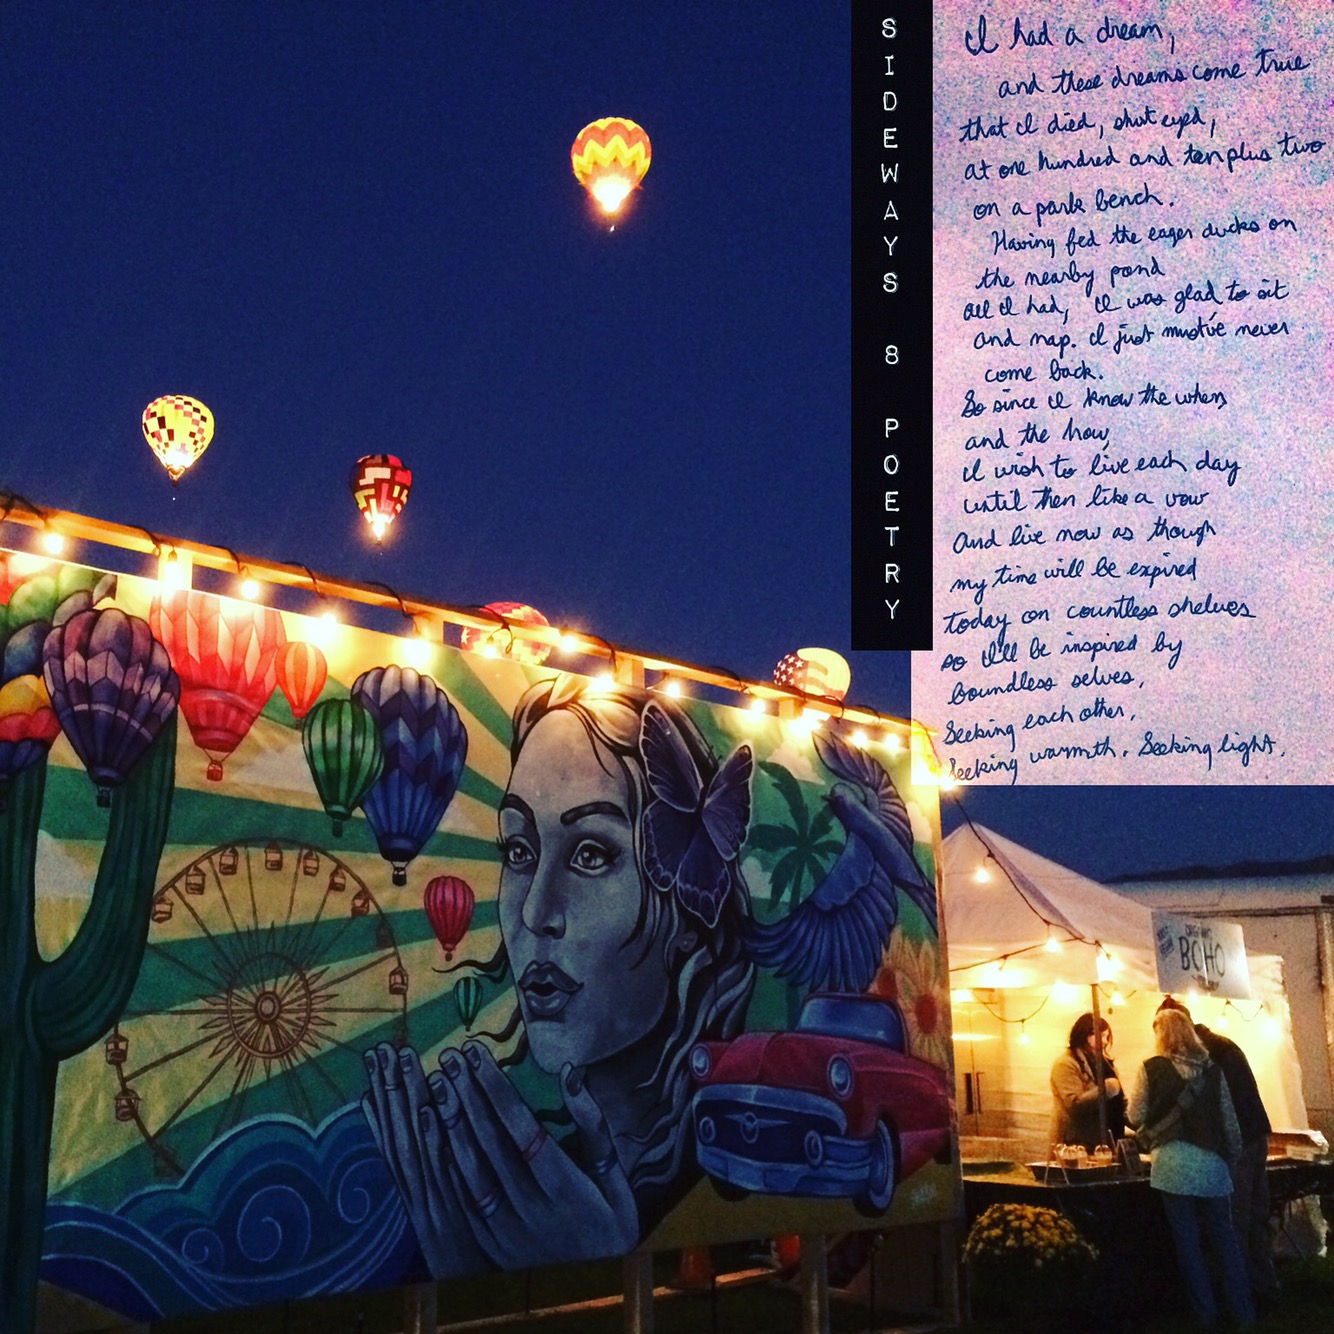 SIDEWAYS 8 POETRY
I had a dream,
and these dreams come true
that I died, shut eyed,
at one hundred and ten plus two
on a park bench.
Having fed the eager ducks on
the nearby pond
all I had, I was glad to sit
and nap. I just must've never
come back.
So since I know the when
and the how,
I wish to live each day
until then like a vow
and live now as though
my time will be expired
today on countless shelves
so I'll be inspired by
boundless selves,
Seeking each other,
Seeking warmth. Seeking light.
BOHO